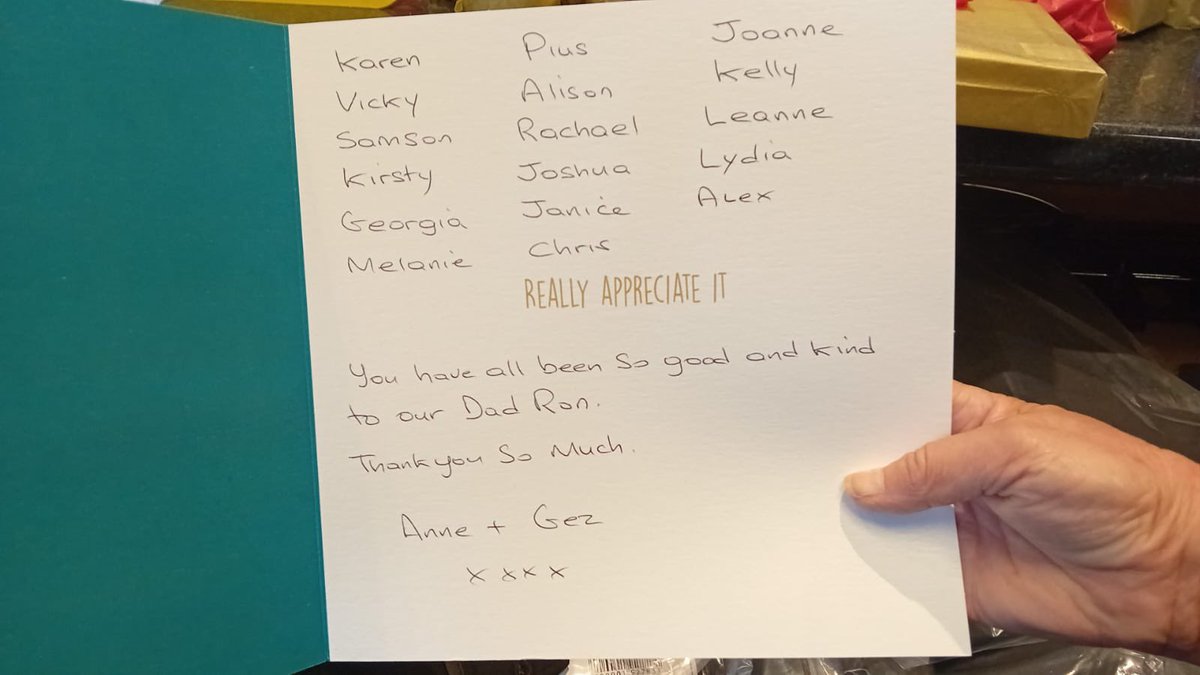 Karen Pius Joanne
Vicky Alison Kelly
Samson Rachael Leanne
Kirsty Joshua Lydia
Georgia Janice Alex
Melanie Chris
REALLY APPRECIATE IT
You have all been so good and kind
to our Dad Ron.
Thankyou So Much.
Anne + Gez
x x x x